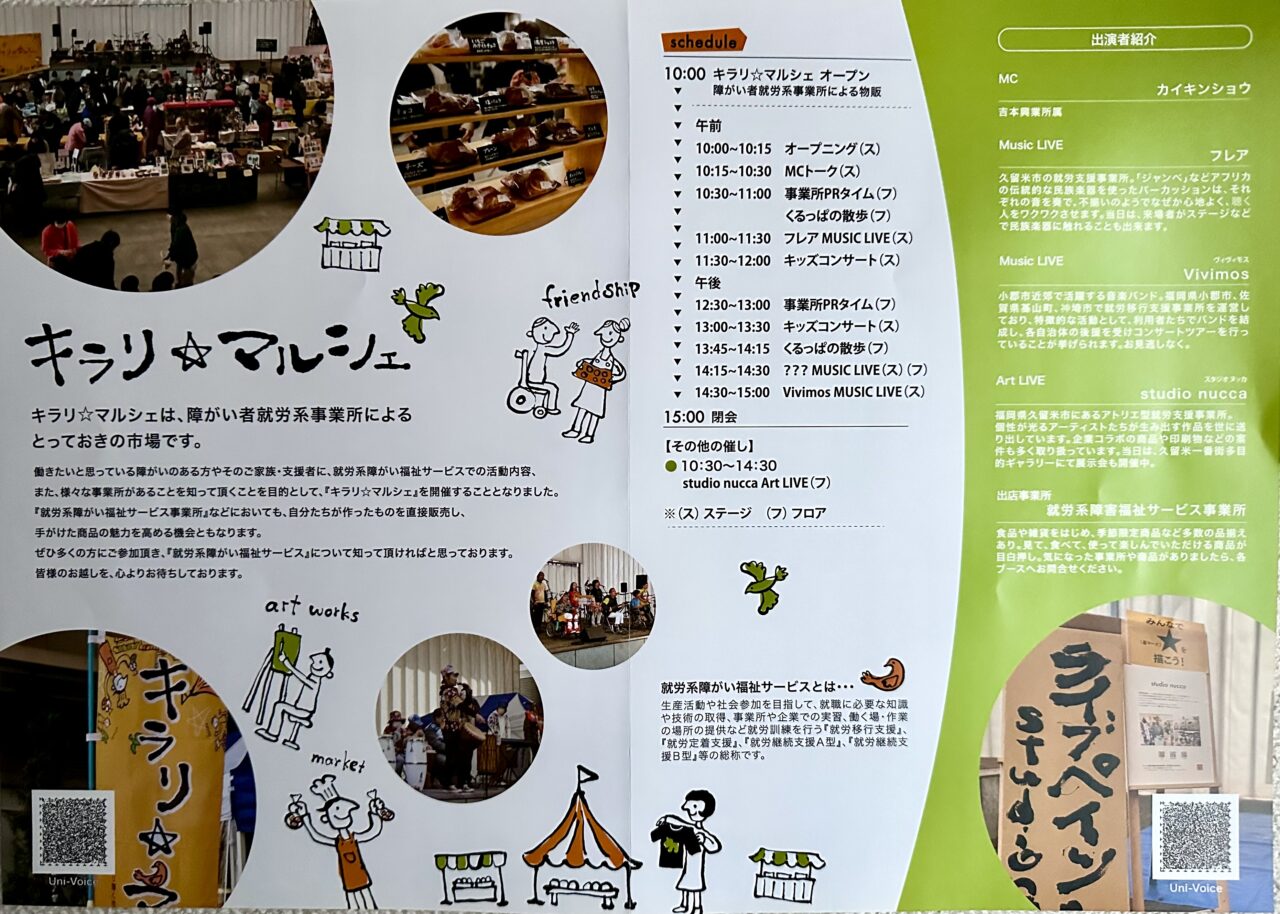 キラリ☆マルシェ
friendship
キラリ☆マルシェは、障がい者就労系事業所による
とっておきの市場です。
働きたいと思っている障がいのある方やそのご家族・支援者に、就労系障がい福祉サービスでの活動内容、
また、様々な事業所があることを知って頂くことを目的として、『キラリ☆マルシェ』を開催することとなりました。
『就労系障がい福祉サービス事業所』などにおいても、自分たちが作ったものを直接販売し、
手がけた商品の魅力を高める機会ともなります。
ぜひ多くの方にご参加頂き、『就労系障がい福祉サービス』について知って頂ければと思っております。
皆様のお越しを、心よりお待ちしております。
art works
market
キラリ☆マ
Uni-Voice
チーズ
schedule
10:00 キラリ☆マルシェ オープン
障がい者就労系事業所による物販
午前
10:00~10:15 オープニング(ス)
10:15~10:30 MCトーク(ス)
10:30~11:00 事業所PRタイム(フ)
くるっぱの散歩(フ)
11:00~11:30 フレア MUSIC LIVE(ス)
11:30~12:00 キッズコンサート(ス)
午後
12:30~13:00 事業所PRタイム(フ)
13:00~13:30 キッズコンサート(ス)
13:45~14:15 くるっぱの散歩(フ)
14:15~14:30 ??? MUSIC LIVE(ス)(フ)
14:30~15:00 Vivimos MUSIC LIVE(ス)
15:00 閉会
【その他の催し】
●10:30~14:30
studio nucca Art LIVE(フ)
※(ス)ステージ (フ)フロア
就労系障がい福祉サービスとは・・・
生産活動や社会参加を目指して、就職に必要な知識
や技術の取得、事業所や企業での実習、働く場・作業
の場所の提供など就労訓練を行う『就労移行支援』、
『就労定着支援』、『就労継続支援A型』、『就労継続支
援B型』等の総称です。
出演者紹介
MC
カイキンショウ
吉本興業所属
Music LIVE
フレア
久留米市の就労支援事業所。「ジャンベ」などアフリカ
の伝統的な民族楽器を使ったパーカッションは、それ
ぞれの音を奏で、不揃いのようでなぜか心地よく、聴く
人をワクワクさせます。当日は、来場者がステージなど
で民族楽器に触れることも出来ます。
Music LIVE
ヴィヴィモス
Vivimos
小郡市近郊で活躍する音楽バンド。福岡県小郡市、佐
賀県基山町、神埼市で就労移行支援事業所を運営し
ており、特徴的な活動として、利用者たちでバンドを結
成し、各自治体の後援を受けコンサートツアーを行っ
ていることが挙げられます。お見逃しなく。
Art LIVE
スタジオ ヌッカ
studio nucca
福岡県久留米市にあるアトリエ型就労支援事業所。
個性が光るアーティストたちが生み出す作品を世に送
り出しています。企業コラボの商品や印刷物などの案
件も多く取り扱っています。当日は、久留米一番街多目
的ギャラリーにて展示会も開催中。
出店事業所
就労系障害福祉サービス事業所
食品や雑貨をはじめ、季節限定商品など多数の品揃え
あり。見て、食べて、使って楽しんでいただける商品が
目白押し。気になった事業所や商品がありましたら、各
ブースへお問合せください。
みんなで
★を
描こう!
studio nucca
ライブペイン
studio n
Uni-Voice